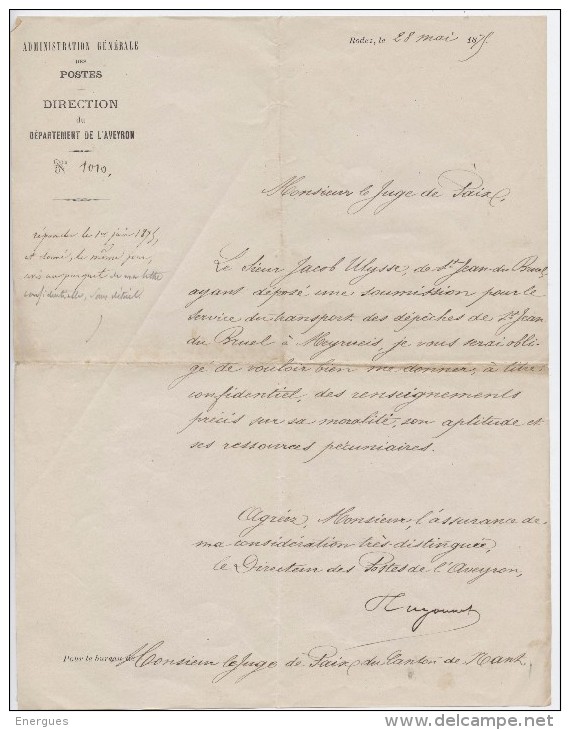 ADMINISTRATION GÉNÉRALE
DES
POSTES
DIRECTION
du
DÉPARTEMENT DE L'AVEYRON
1010,
Rodez, le 28 mai 1875.
Monsieur le Juge de Paix,
répondu le 1er juin 1875,
et donné, le même jour,
avis au parquet de ma lettre
confidentielle, sans détails
Le Sieur Jacob Ulysse, de St Jean du Bruel
ayant déposé une soumission pour le
service du transport des dépêches de St Jean
du Bruel à Meyrueis, je vous serai obli-
gé de vouloir bien me donner, à titre
confidentiel, des renseignements
précis sur sa moralité, son aptitude et
ses ressources pécuniaires.
Agréez, Monsieur, l'assurance de
ma considération très distinguée,
le Directeur des Postes de l'Aveyron,
Pour le bureau de Monsieur le Juge de Paix du Canton de Nant.
Energues
www.delcampe.net